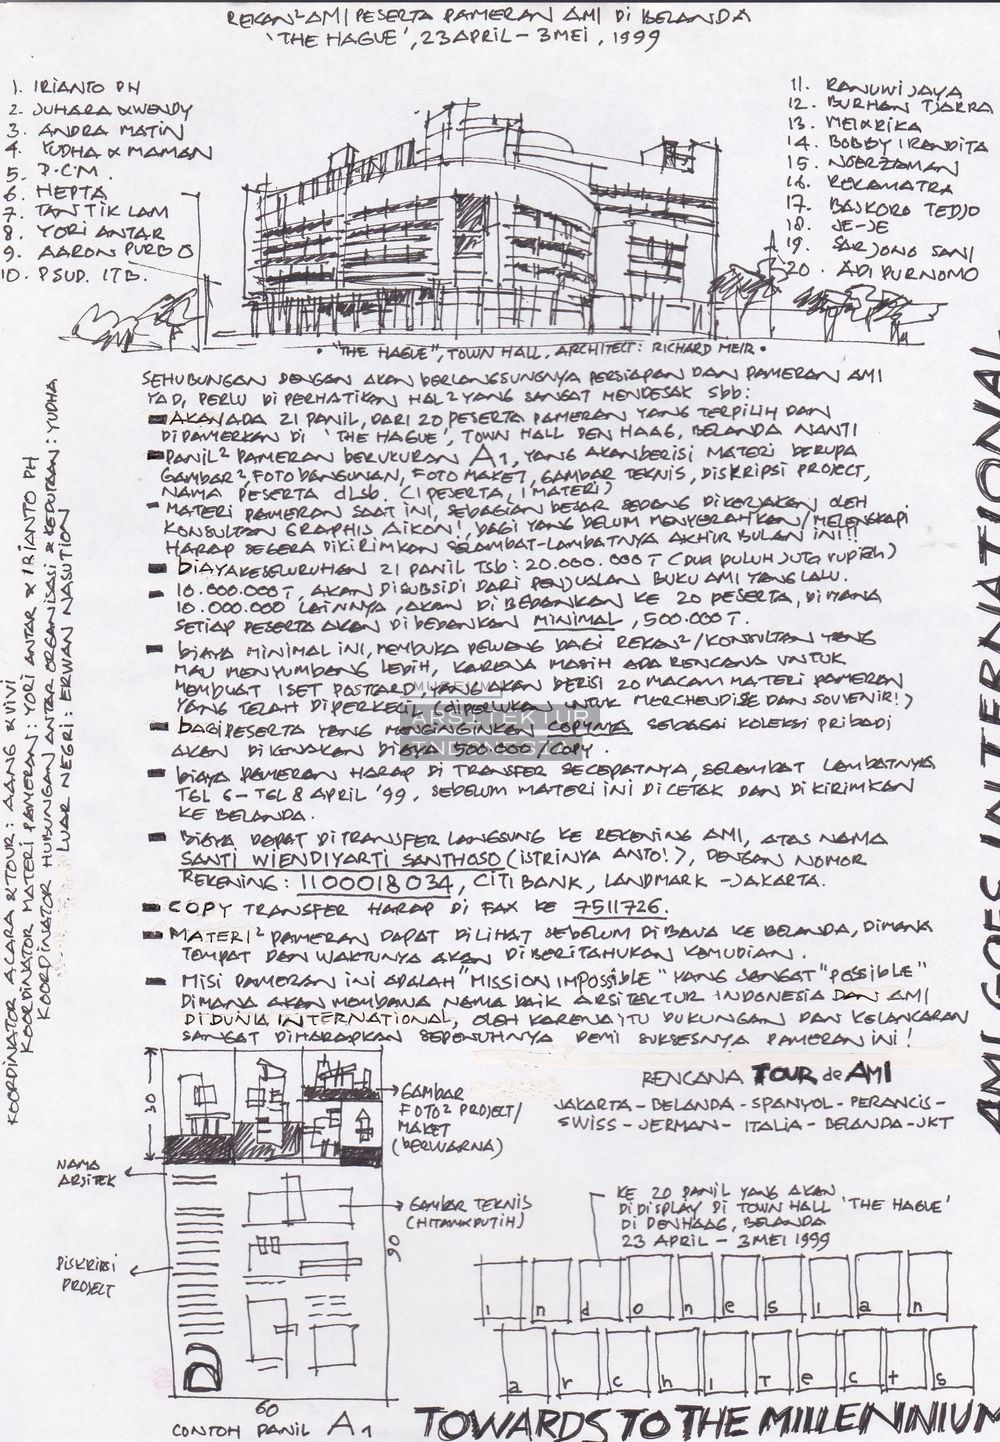 REKAN² AMI PESERTA PAMERAN AMI DI BELANDA
'THE HAGUE', 23 APRIL – 3 MEI, 1999
1. IRIANTO PH
2. JUHARA & WENDY
3. ANDRA MATIN
4. YUDHA & MAMAN
5. P.C.M.
6. HEPTA
7. TAN TIK LAM
8. YORI ANTAR
9. AARON PURBO
10. PSUD. ITB.
11. RANUWIJAYA
12. BURHAN TJARRA
13. MEI & RIKA
14. BOBBY IRANDITA
15. NOERZAMAN
16. REKAMATRA
17. BASKORO TEDJO
18. JE-JE
19. SARJONO SANI
20. ADI PURNOMO
• "THE HAGUE", TOWN HALL, ARCHITECT: RICHARD MEIR •
SEHUBUNGAN DENGAN AKAN BERLANGSUNGNYA PERSIAPAN DAN PAMERAN AMI
YAD, PERLU DIPERHATIKAN HAL² YANG SANGAT MENDESAK Sbb:
- AKAN ADA 21 PANIL, DARI 20 PESERTA PAMERAN YANG TERPILIH DAN
DIPAMERKAN DI 'THE HAGUE', TOWN HALL DEN HAAG, BELANDA NANTI
- PANIL² PAMERAN BERUKURAN A1, YANG AKAN BERISI MATERI BERUPA
GAMBAR², FOTO BANGUNAN, FOTO MAKET, GAMBAR TEKNIS, DISKRIPSI PROJECT,
NAMA PESERTA dLsb. (1 PESERTA, 1 MATERI)
- MATERI PAMERAN SAAT INI, SEBAGIAN BESAR SEDANG DIKERJAKAN OLEH
KONSULTAN GRAPHIS AIKON!, BAGI YANG BELUM MENYERAHKAN/MELENGKAPI
HARAP SEGERA DIKIRIMKAN SELAMBAT-LAMBATNYA AKHIR BULAN INI!!
- BIAYA KESELURUHAN 21 PANIL TSb: 20.000.000T (DUA PULUH JUTA RUPIAH)
- 10.000.000T, AKAN DISUBSIDI DARI PENJUALAN BUKU AMI YANG LALU.
10.000.000 LAINNYA, AKAN DIBEBANKAN KE 20 PESERTA, DIMANA
SETIAP PESERTA AKAN DIBEBANKAN MINIMAL, 500.000T.
- BIAYA MINIMAL INI, MEMBUKA PELUANG BAGI REKAN²/KONSULTAN YANG
MAU MENYUMBANG LEBIH, KARENA MASIH ADA RENCANA UNTUK
MEMBUAT 1 SET POSTCARD, YANG AKAN BERISI 20 MACAM MATERI PAMERAN
YANG TELAH DIPERKECIL (DIPERLUKAN UNTUK MERCHENDISE DAN SOUVENIR!)
MUSEUM
ARSITEKTUR
INDONESIA
- BAGI PESERTA YANG MENGINGINKAN COPYNYA SEBAGAI KOLEKSI PRIBADI
AKAN DIKENAKAN BIAYA 500.000/COPY.
- BIAYA PAMERAN HARAP DI TRANSFER SECEPATNYA, SELAMBAT LAMBATNYA
TGL 6 – TGL 8 APRIL '99, SEBELUM MATERI INI DICETAK DAN DIKIRIMKAN
KE BELANDA.
- BIAYA DAPAT DITRANSFER LANGSUNG KE REKENING AMI, ATAS NAMA
SANTI WIENDIYARTI SANTHOSO (ISTRINYA ANTO!), DENGAN NOMOR
REKENING: 1100018034, CITIBANK, LANDMARK – JAKARTA.
- COPY TRANSFER HARAP DI FAX KE 7511726.
- MATERI² PAMERAN DAPAT DILIHAT SEBELUM DIBAWA KE BELANDA, DIMANA
TEMPAT DAN WAKTUNYA AKAN DIBERITAHUKAN KEMUDIAN.
- MISI PAMERAN INI ADALAH "MISSION IMPOSSIBLE" YANG SANGAT "POSSIBLE"
DIMANA AKAN MEMBAWA NAMA BAIK ARSITEKTUR INDONESIA DAN AMI
DI DUNIA INTERNATIONAL, OLEH KARENA ITU DUKUNGAN DAN KELANCARAN
SANGAT DIHARAPKAN SEPENUHNYA DEMI SUKSESNYA PAMERAN INI!
KOORDINATOR ACARA & TOUR: AANG & VIVI
KOORDINATOR MATERI PAMERAN: YORI ANTAR & IRIANTO PH
KOORDINATOR HUBUNGAN ANTAR ORGANISASI & KEDUTAAN: YUDHA
LUAR NEGRI: ERWAN NASUTION
AMI GOES INTERNATIONAL
RENCANA TOUR de AMI
JAKARTA – BELANDA – SPANYOL – PERANCIS –
SWISS – JERMAN – ITALIA – BELANDA – JKT
30
GAMBAR
FOTO² PROJECT/
MAKET
(BERWARNA)
NAMA
ARSITEK
GAMBAR TEKNIS
(HITAM & PUTIH)
90
DISKRIPSI
PROJECT
60
CONTOH PANIL A1
KE 20 PANIL YANG AKAN
DIDISPLAY DI TOWN HALL 'THE HAGUE'
DI DENHAAG, BELANDA
23 APRIL – 3 MEI 1999
indonesian
architects
TOWARDS TO THE MILLENNIUM